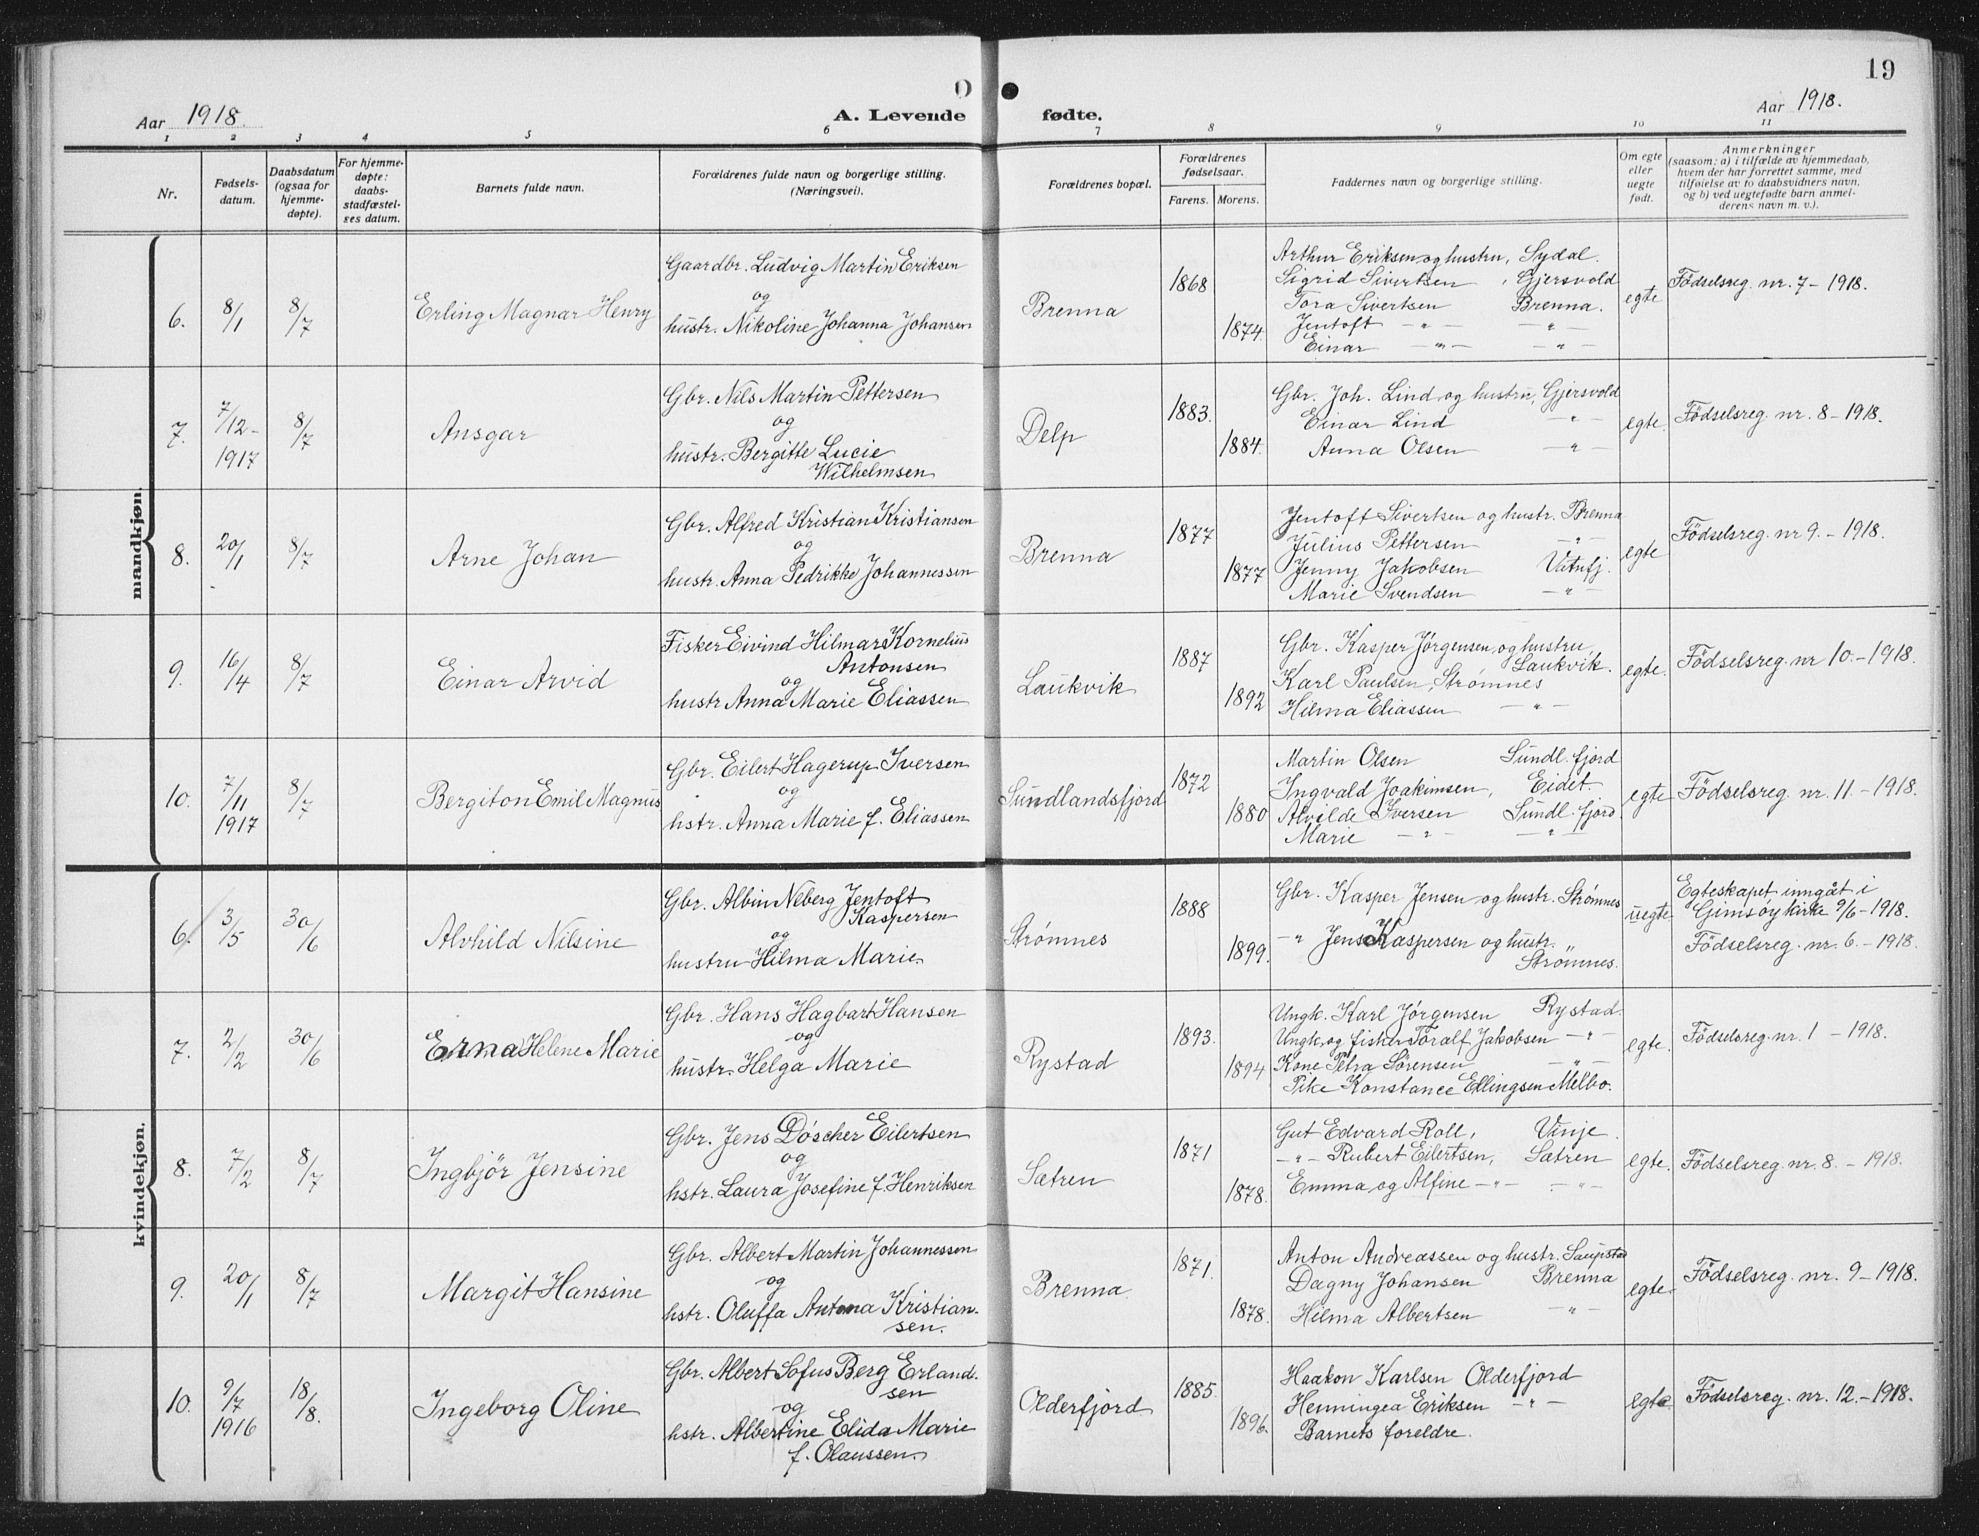 19
Aar 1918.
O
A. Levende fødte.
Aar 1918.
1 2 3 4 5 6 7 8 9 10 11
Nr.
Fødsels-
datum.
Daabsdatum
(ogsaa for
hjemme-
døpte).
For hjemme-
døpte:
daabs-
stadfæstel-
ses datum.
Barnets fulde navn.
Forældrenes fulde navn og borgerlige stilling.
(Næringsvei).
Forældrenes bopæl.
Forældrenes
fødselsaar.
Farens. Morens.
Faddernes navn og borgerlige stilling.
Om egte
eller
uegte
født.
Anmerkninger
(saasom: a) i tilfælde av hjemmedaab,
hvem der har forrettet samme, med
tilføielse av to daabsvidners navn,
og b) ved uegtefødte barn anmel-
derens navn m. v.).
mandkjøn.
6.
8/1
8/7
Erling Magnar Henry
Gaardbr. Ludvig Martin Eriksen
og
hustr. Nikoline Johanna Johansen
Brenna
1868
1874.
Arthur Eriksen og hustru, Sydal.
Sigrid Sivertsen, Gjersvold
Tora Sivertsen Brenna.
Jentoft -"- -"-
Einar -"- -"-
egte
Födselsreg. nr. 7 - 1918.
7.
7/12-
1917
8/7
Ansgar
Gbr. Nils Martin Pettersen
og
hustr. Bergitte Lucie
Wilhelmsen
Delp
1883.
1884.
Gbr. Joh. Lind og hustru, Gjersvold
Einar Lind -"-
Anna Olsen -"-
egte.
Födselsreg. nr. 8 - 1918.
8.
20/1
8/7
Arne Johan
Gbr. Alfred Kristian Kristiansen
og
hustr. Anna Pedrikke Johannessen
Brenna
1877
1877
Jentoft Sivertsen og hustr. Brenna
Julius Pettersen -"-
Jenny Jakobsen Vatnfj.
Marie Svendsen -"-
egte
Födselsreg. nr 9. - 1918.
9.
16/4
8/7
Einar Arvid
Fisker Eivind Hilmar Kornelius
Antonsen
og
hustr Anna Marie Eliassen
Laukvik
1887
1892
Gbr. Kasper Jørgensen og hustru,
Laukvik.
Karl Paulsen, Strømnes
Hilma Eliassen -"-
egte.
Födselsreg. nr 10. - 1918.
10.
7/11
1917
8/7
Bergiton Emil Magnus
Gbr. Eilert Hagerup Iversen
og
hstr. Anna Marie f. Eliassen
Sundlandsfjord
1872
1880
Martin Olsen Sundl. fjord
Ingvald Joakimsen, Eidet.
Alvilde Iversen Sundl. fjord.
Marie -"- -"-
egte
Födselsreg. nr. 11. - 1918.
kvindekjøn.
6.
3/5
30/6
Alvhild Nilsine
Gbr. Albin Neberg Jentoft
Kaspersen
og
hustru Hilma Marie.
Strømnes
1888
1899.
Gbr. Kasper Jensen og hustr. Strømnes
-"- Jens Kaspersen og hustr. "
Strømnes.
uegte
Egteskapet inngåt i
Gimsøy kirke 9/6 - 1918.
Födselsreg. nr. 6. - 1918.
7.
2/2
30/6
Erna Helene Marie
Gbr. Hans Hagbart Hansen
og
hustr. Helga Marie
Rystad
1893.
1894
Ungk. Karl Jørgensen Rystad.
Ungk. og fisker Toralf Jakobsen -"-
Kone Petra Sørensen -"-
Pike Konstance Ellingsen Melbo.
egte.
Födselsreg. nr. 1 - 1918.
8.
7/2
8/7
Ingbjör Jensine
Gbr. Jens Döscher Eilertsen
og
hstr. Laura Josefine f. Henriksen
Sætren
1871
1878.
Gut Edvard Roll, Vinje.
-"- Rubert Eilertsen, Sætren
Emma og Alfine -"- -"-
egte.
Födselsreg. nr. 8. - 1918.
9.
20/1
8/7
Margit Hansine
Gbr. Albert Martin Johannessen
og
hstr. Oluffa Antona Kristian-
sen.
Brenna.
1871.
1878.
Anton Andreassen og hustr. Saupstad
Dagny Johansen Brenna
Hilma Albertsen -"-
egte.
Födselsreg. nr. 9 - 1918.
10.
9/7
1916
18/8.
Ingeborg Oline
Gbr. Albert Sofus Berg Erland-
sen
og
hstr. Albertine Elida Marie
f. Olaussen.
Olderfjord
1885.
1896.
Haakon Karlsen Olderfjord
Henningea Eriksen -"-
Barnets foreldre.
egte
Födselsreg. nr. 12. - 1918.